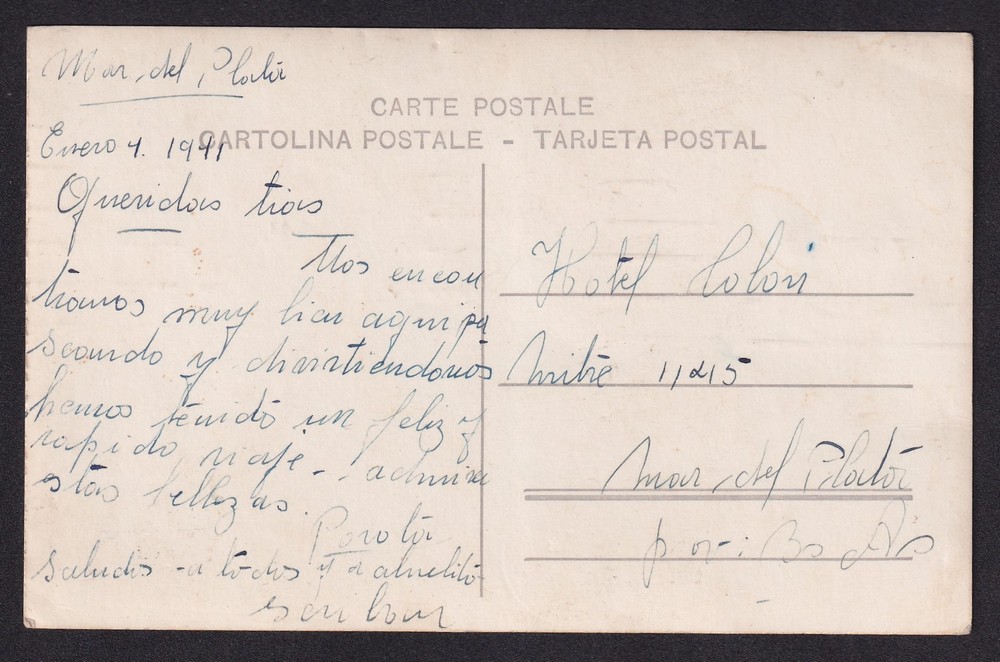 Mar del Plata
CARTE POSTALE
CARTOLINA POSTALE - TARJETA POSTAL
Enero 1941
Queridas tias
Nos encon
tramos muy bien aqui pa
seando y divirtiendonos
hemos tenido un feliz y
rapido viaje - admira
estas bellezas.
Porota
saludos a todos y a abuelito
Hotel Colon
Mitre 1,215
Mar del Plata
Bs As